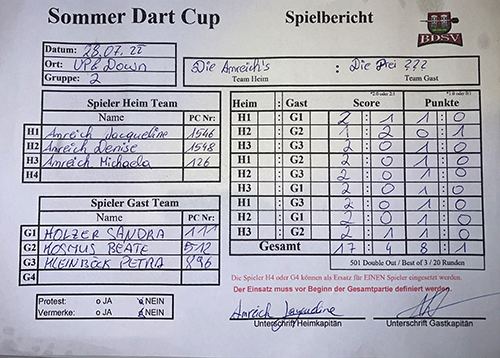 Sommer Dart Cup Spielbericht
BDSV
Datum: 28.07.22
Ort: UP & Down
Gruppe: 2
Die Anreich's : Die Drei ???
Team Heim Team Gast
*2:0 oder 2:1 *1:0 oder 0:1
Spieler Heim Team
Name PC Nr:
H1 Anreich Jacqueline 1546
H2 Anreich Denise 1548
H3 Anreich Michaela 126
H4
Heim : Gast Score Punkte
H1 : G1 2 : 1 1 : 0
H2 : G2 1 : 2 0 : 1
H3 : G3 2 : 0 1 : 0
H1 : G2 2 : 0 1 : 0
H2 : G3 2 : 0 1 : 0
H3 : G1 2 : 0 1 : 0
H1 : G3 2 : 0 1 : 0
H2 : G1 2 : 0 1 : 0
H3 : G2 2 : 1 1 : 0
Gesamt 17 : 4 8 : 1
501 Double Out / Best of 3 / 20 Runden
Spieler Gast Team
Name PC Nr:
G1 HOLZER SANDRA 111
G2 KOSMUS BEATE 512
G3 KLEINBÖCK PETRA 896
G4
Die Spieler H4 oder G4 können als Ersatz für EINEN Spieler eingesetzt werden.
Der Einsatz muss vor Beginn der Gesamtpartie definiert werden.
Protest: o JA o NEIN
Vermerke: o JA o NEIN
Anreich Jacqueline
Unterschrift Heimkapitän Unterschrift Gastkapitän